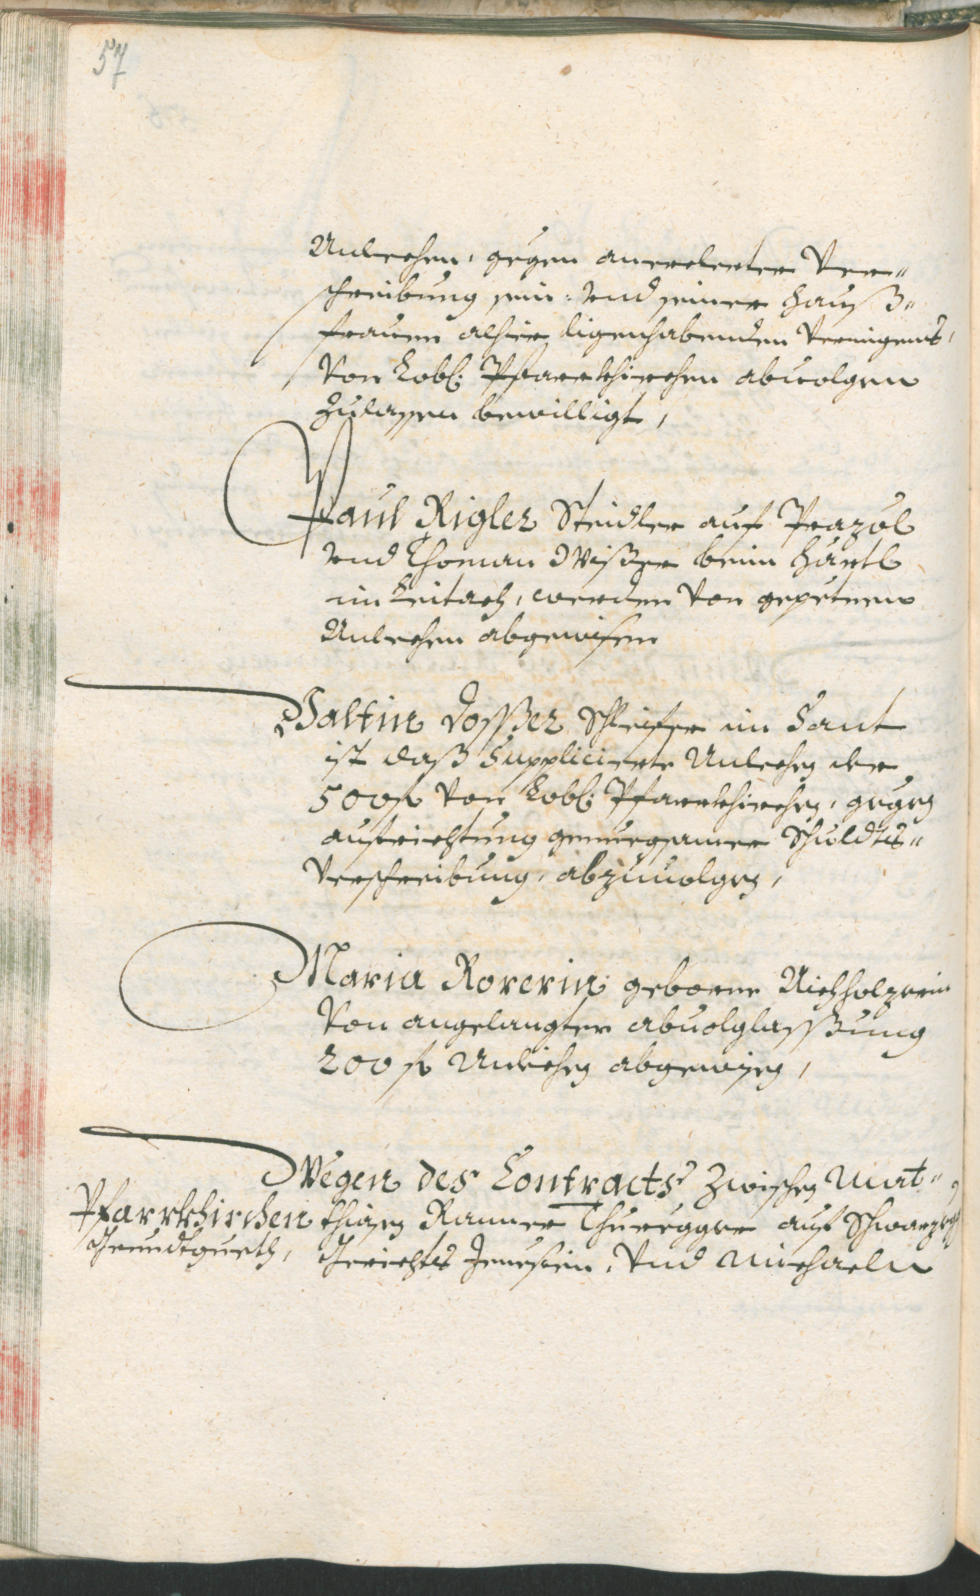 57
Anlechen, gegen anerbietter Ver„
schreibung sein: vnd seiner Hauß„
frauen alhier ligenhabenden Vermigens,
von Lobl: Pfarrkhirchen abuolgen
zulassen bewilligt,
Paul Rigler Steidler auf
vnd Thoman Wißer beim Härtl
im Leitach, werden von gepetnen
Anlechen abgewisen
Valtin Dosser Schleifer im Sant
ist daß Supplicierte Anlechen der
500 fl von Lobl: Pfarrkhirchen, gegen
aufrichtung genuegsamer Schuldts„
verschreibung, abzuuolgen,
Maria Rorerin geborne Aichholzerin
von angelangter abuolglassung
200 fl Anlechen abgewisen,
Wegen des Contracts zwischen Mat„
Pfarrkhirchen
Grundtgueth,
thiasen Ramer Thuregger auf
Gerichts Jenesien, vnd Michaeln